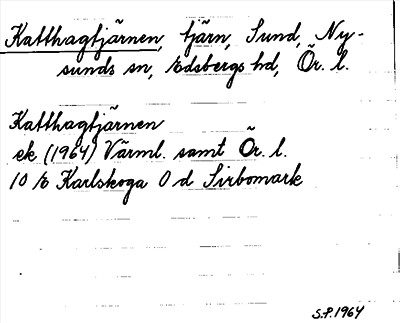 Katthagtjärnen, tjärn, Sund, Ny-
sunds sn, Edsbergs hd, Ör. l.
Katthagtjärnen
ek (1964) Värml. samt Ör. l.
10 E Karlskoga O d Sirbomark
S.P. 1964